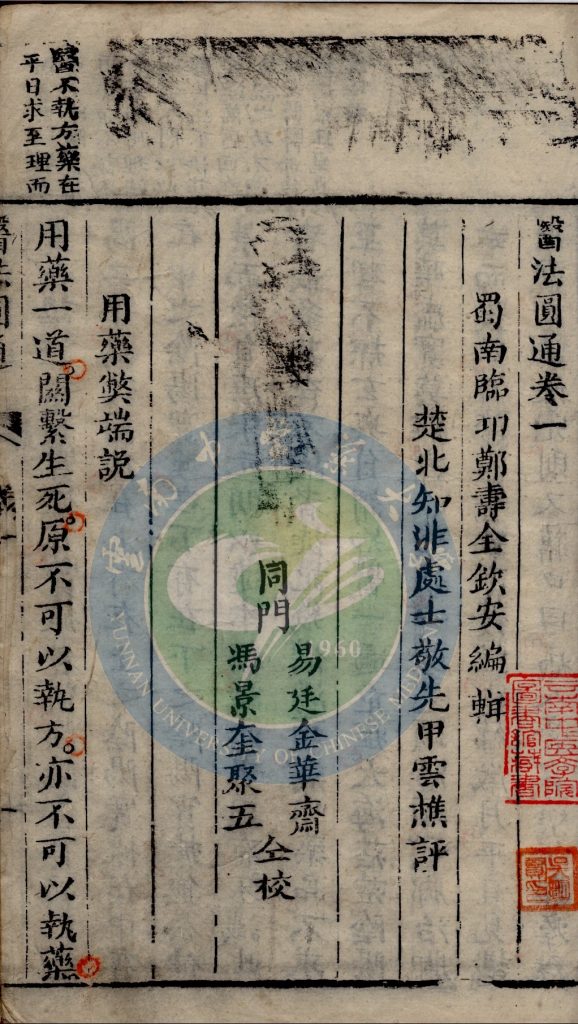 醫法圓通卷一
蜀南臨邛鄭壽全欽安編輯
楚北知非處士敬先甲雲樵評
同門
易廷金華齋
馮景奎聚五
仝校
用藥獘端説
用藥一道關繫生死原不可以執方亦不可以執藥
醫不執方藥在
平日求至理而
醫法圓通
雲南中醫學院
圖書館藏書
YUNNAN UNIVERSITY OF CHINESE MEDICINE
1960